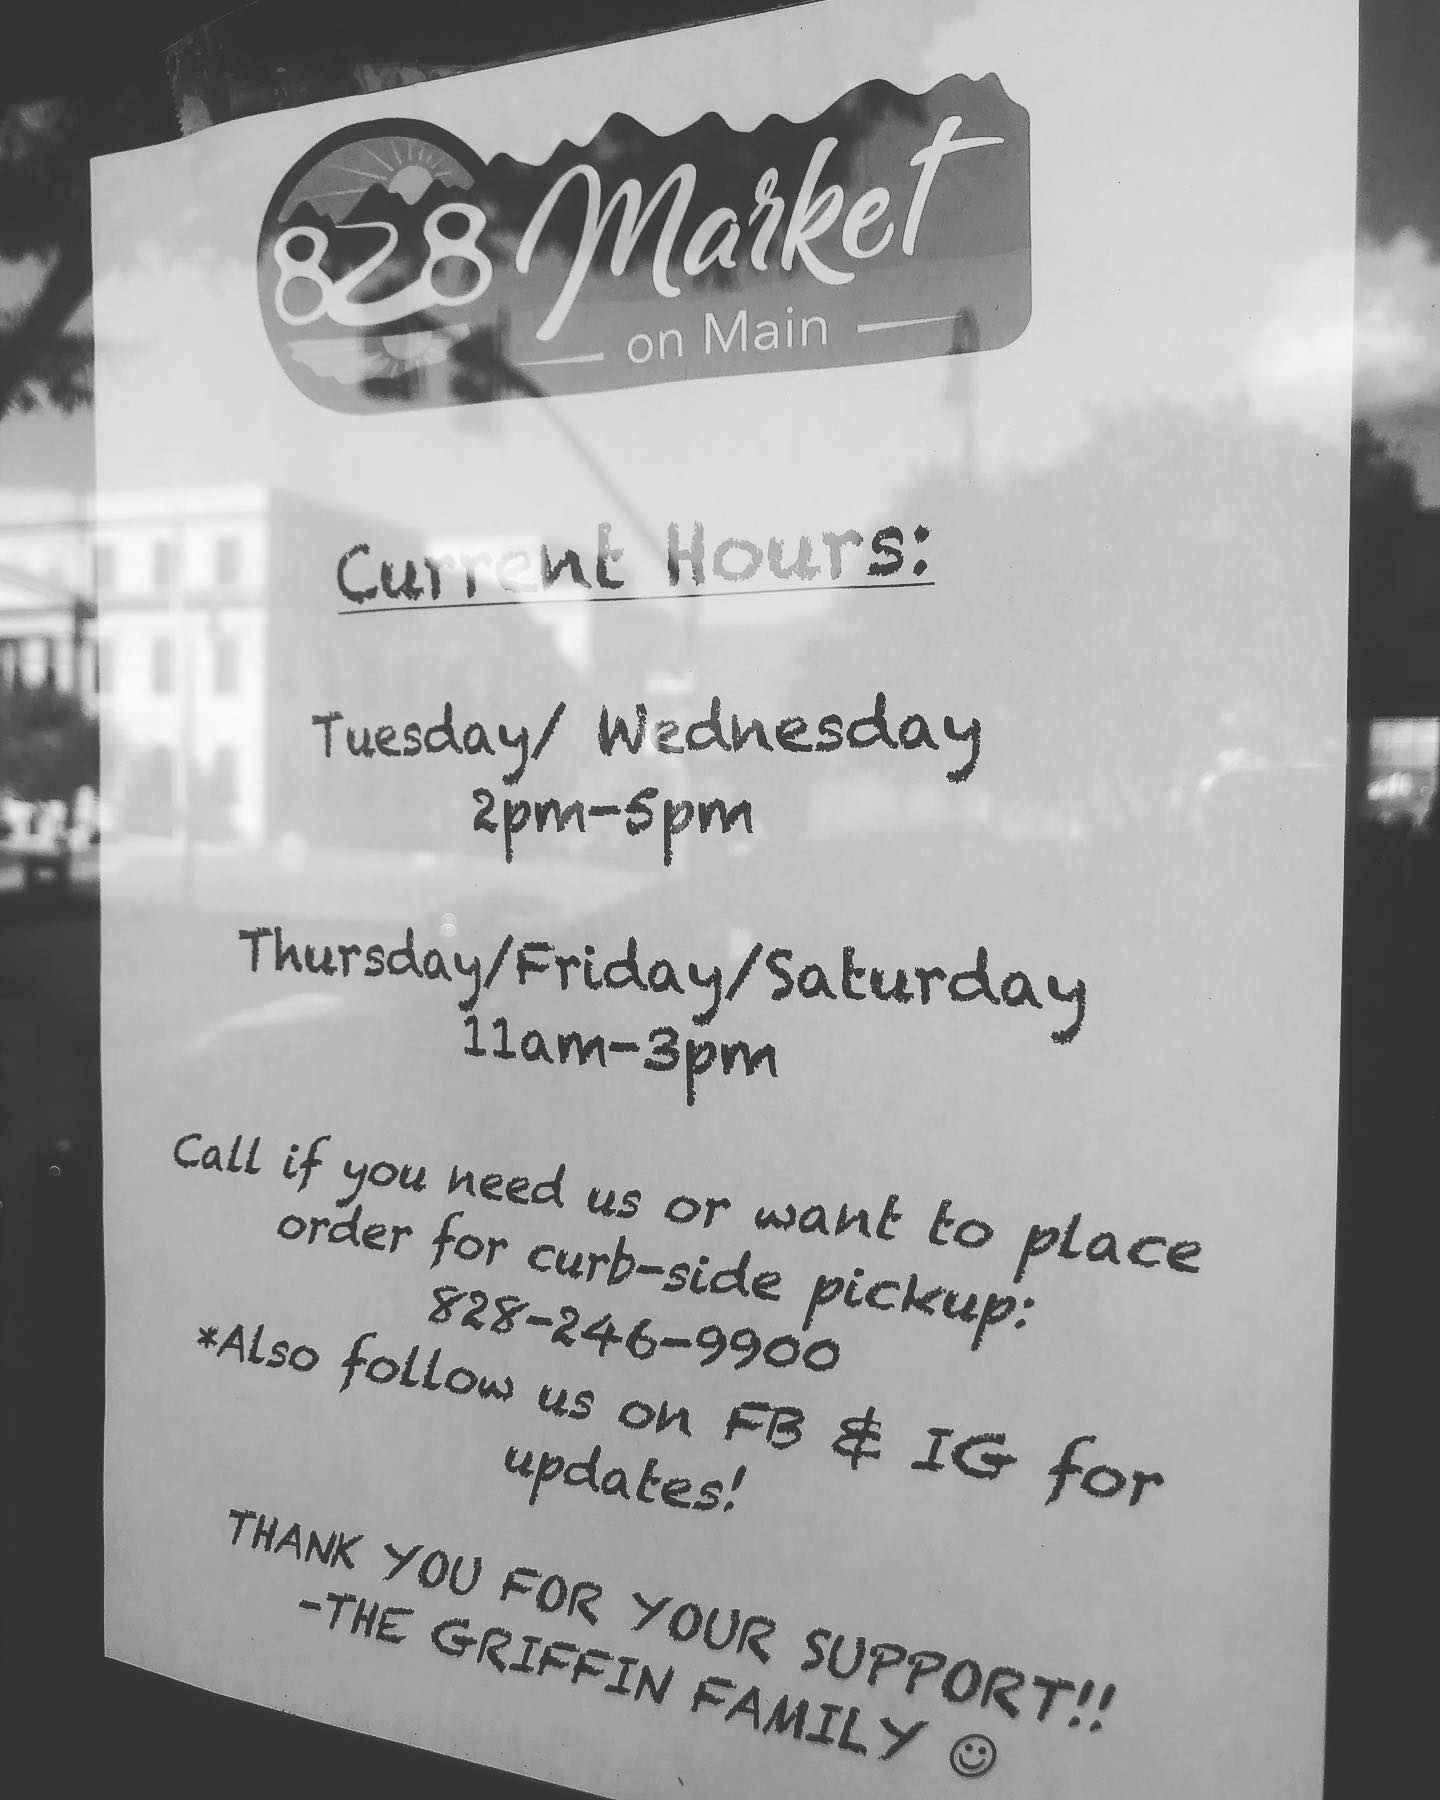 828 Market
on Main
Current Hours:
Tuesday/ Wednesday
2pm-5pm
Thursday/Friday/Saturday
11am-3pm
Call if you need us or want to place
order for curb-side pickup:
828-246-9900
*Also follow us on FB & IG for
updates!
THANK YOU FOR YOUR SUPPORT!!
-THE GRIFFIN FAMILY ☺